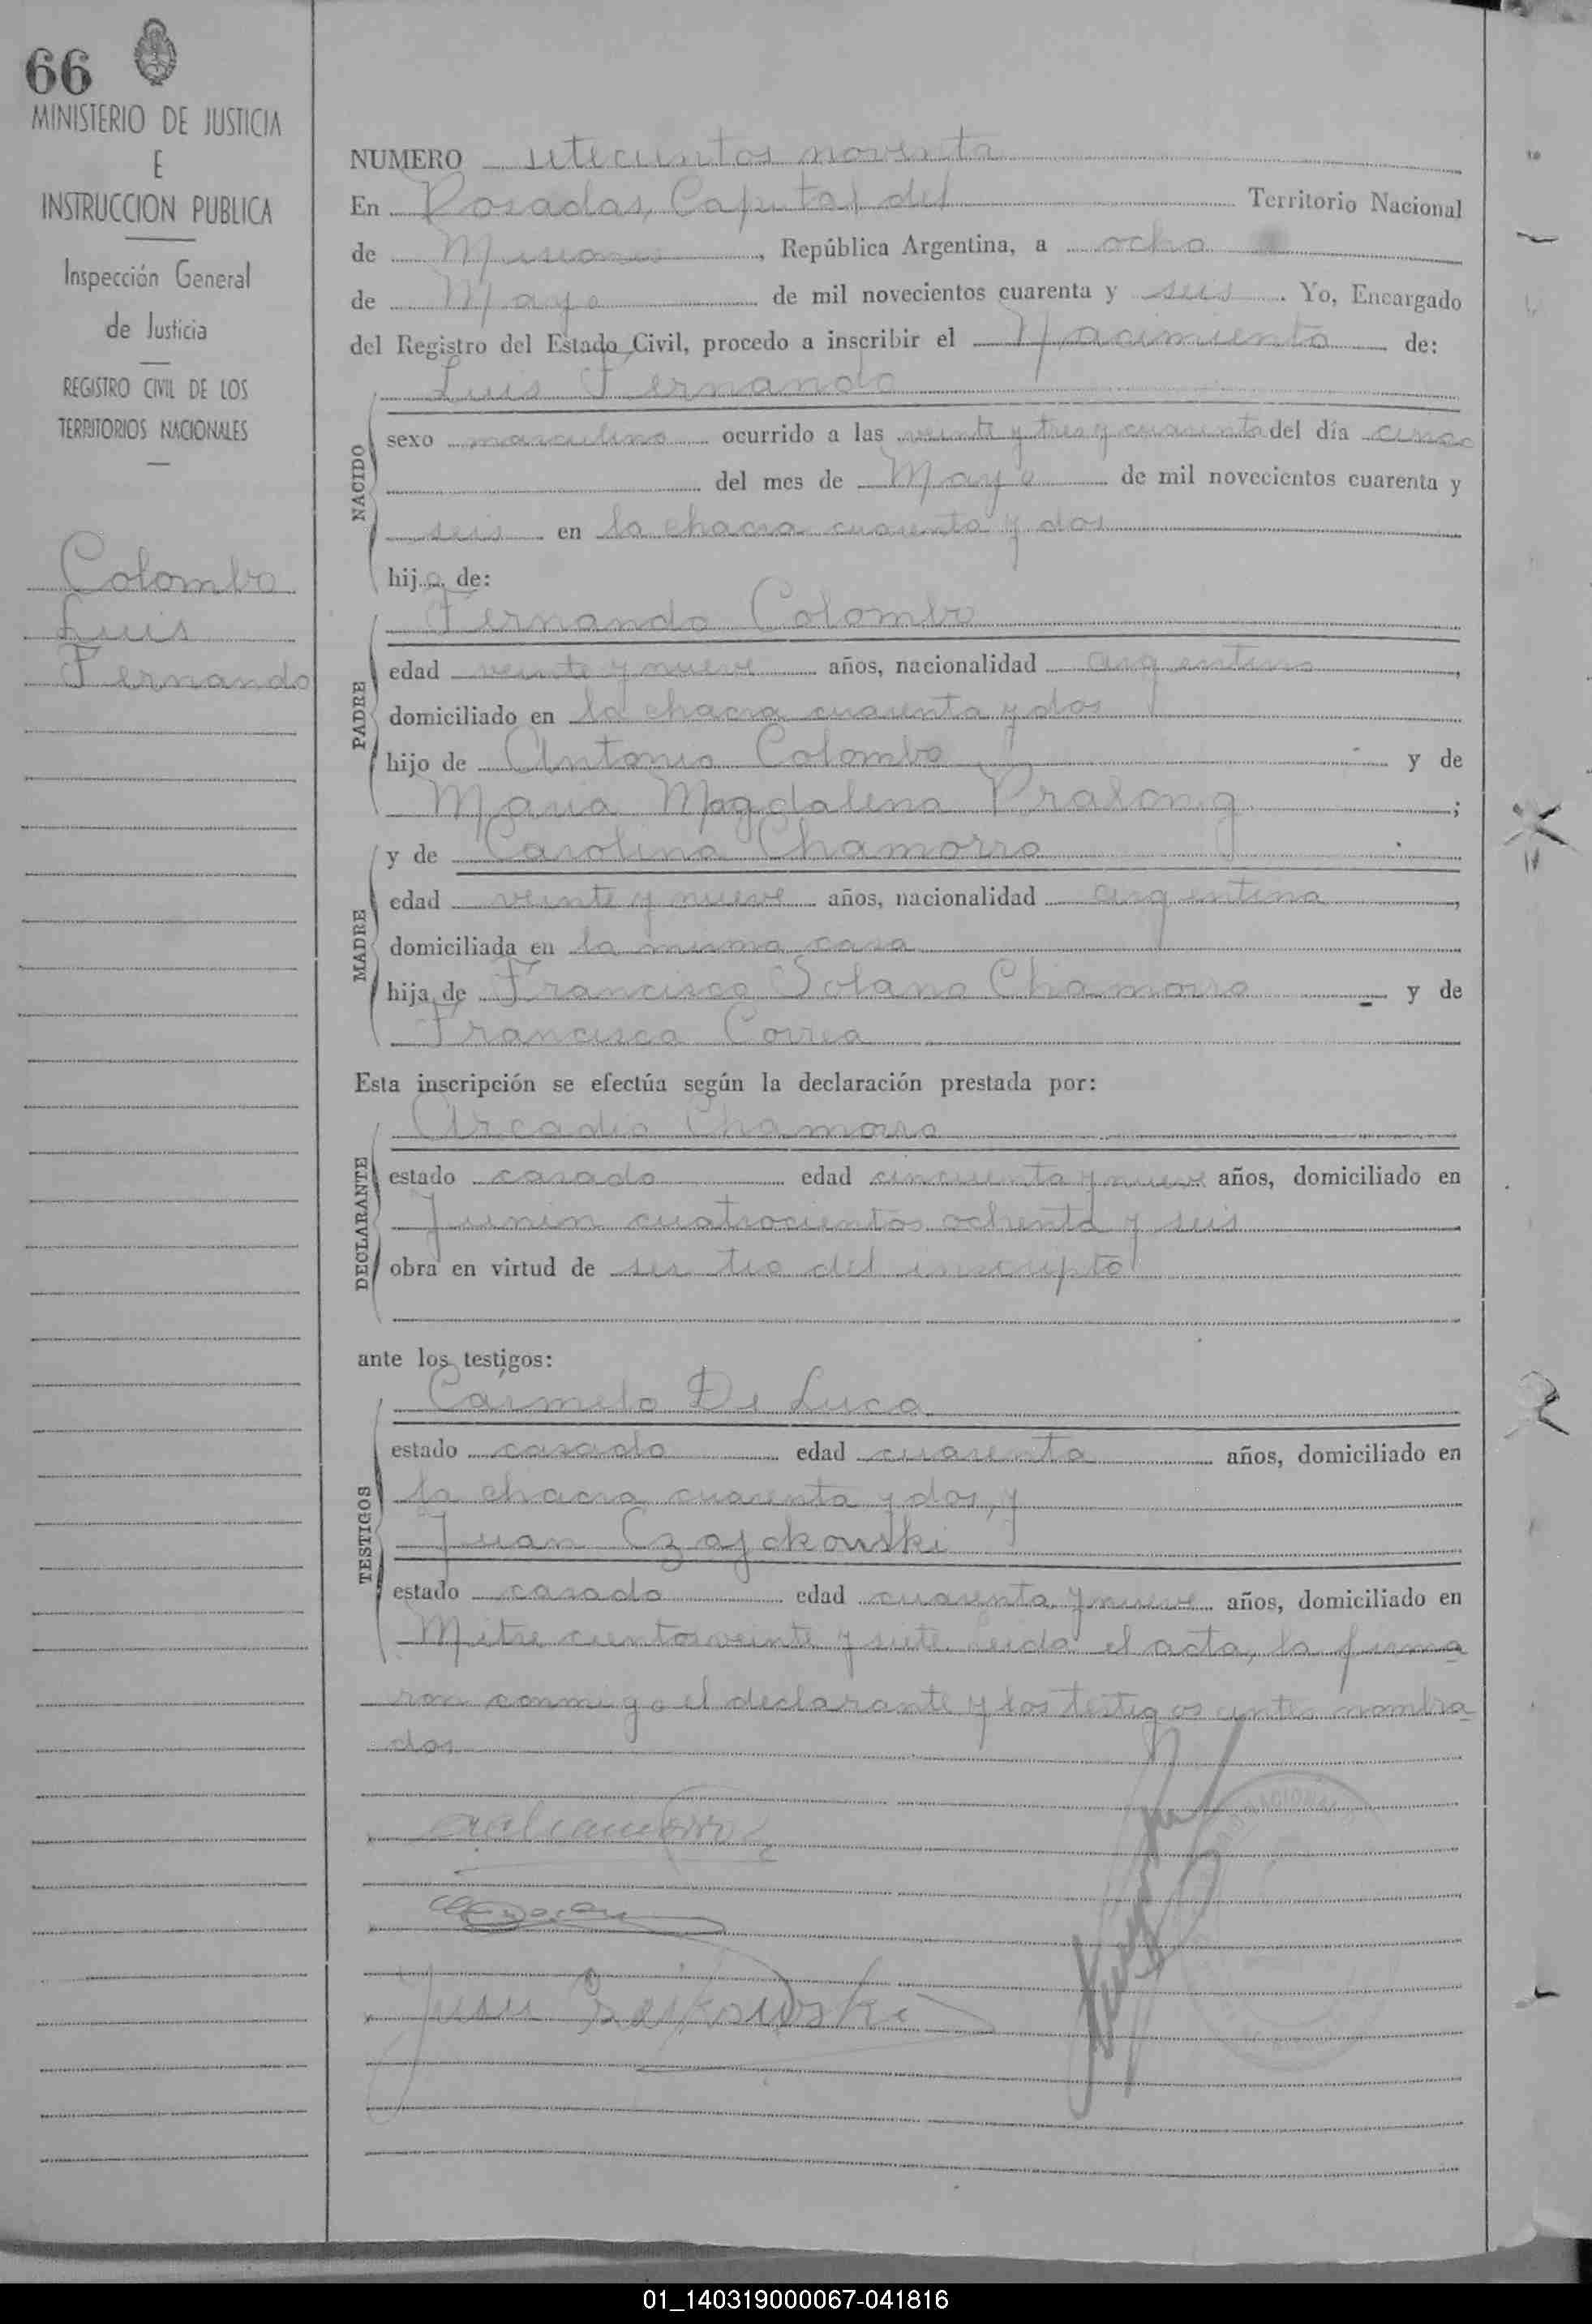 66
MINISTERIO DE JUSTICIA
E
INSTRUCCION PUBLICA
Inspección General
de Justicia
REGISTRO CIVIL DE LOS
TERRITORIOS NACIONALES
Colombo
Luis
Fernando
NUMERO setecientos noventa
En Posadas, Capital del Territorio Nacional
de Misiones, República Argentina, a ocho
de Mayo de mil novecientos cuarenta y seis. Yo, Encargado
del Registro del Estado Civil, procedo a inscribir el Nacimiento de:
Luis Fernando
NACIDO
sexo masculino ocurrido a las veinte y tres y cuarenta del día cinco
del mes de Mayo de mil novecientos cuarenta y
seis en la chacra cuarenta y dos
hijo de:
Fernando Colombo
PADRE
edad veinte y nueve años, nacionalidad argentino,
domiciliado en la chacra cuarenta y dos
hijo de Antonio Colombo y de
Maria Magdalena Pralong;
y de Carolina Chamorro
MADRE
edad veinte y nueve años, nacionalidad argentina,
domiciliada en la misma casa
hija de Francisco Solano Chamorro y de
Francisca Correa
Esta inscripción se efectúa según la declaración prestada por:
Arcadio Chamorro
DECLARANTE
estado casado edad cincuenta y nueve años, domiciliado en
Junin cuatrocientos ochenta y seis
obra en virtud de ser tio del inscripto
ante los testigos:
Carmelo De Luca
TESTIGOS
estado casado edad cuarenta años, domiciliado en
la chacra cuarenta y dos, y
Juan Czajckowski
estado casado edad cuarenta y nueve años, domiciliado en
Mitre cientos veinte y siete. Leida el acta, la firma
ron conmigo el declarante y los testigos antes nombra
dos
Juan
01_140319000067-041816